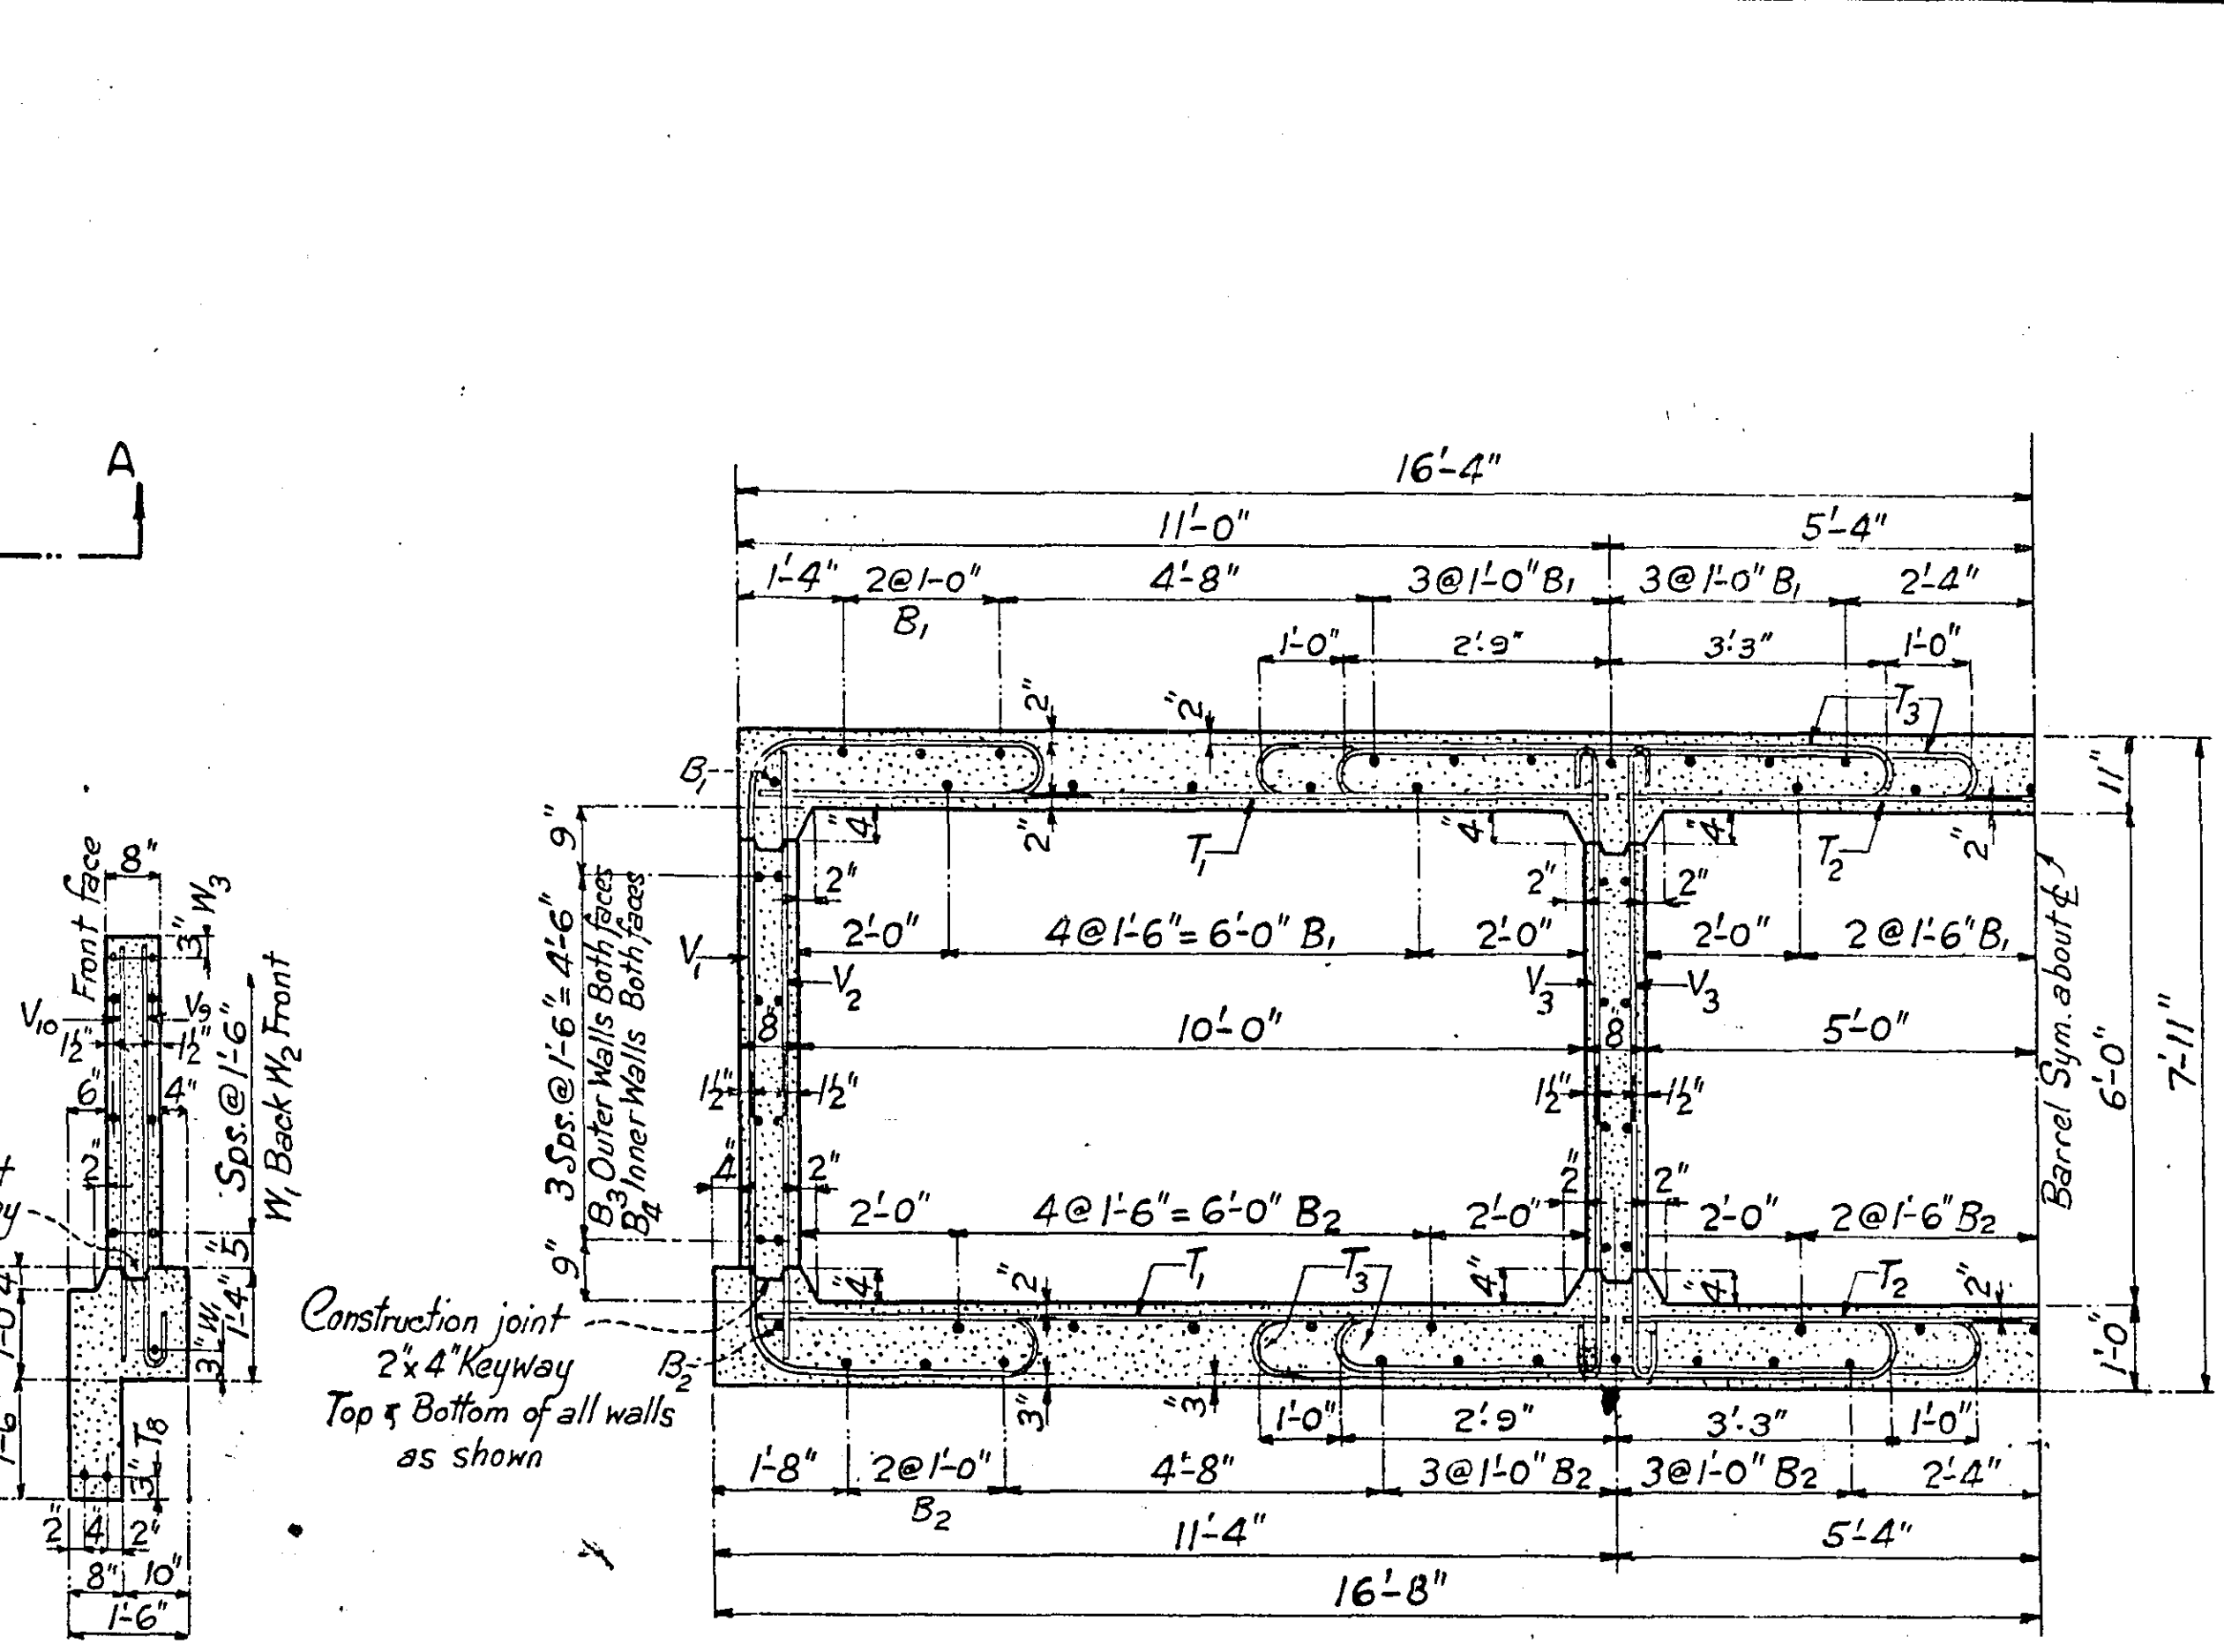 A
16'-4"
11'-0" 5'-4"
1'-4" 2@1'-0" 4'-8" 3@1'-0" B1 3@1'-0" B1 2'-4"
B1
1'-0" 2'-9" 3'-3" 1'-0"
2" 2" T3
B1
11"
9" 4" 2" T1 4" 4" T2 2"
2" 2" 2"
2'-0" 4@1'-6"=6'-0" B1 2'-0" 2'-0" 2@1'-6" B1
V1 V2 V3 V3
8" 10'-0" 8" 5'-0"
1½" 1½" 1½" 1½"
4" 2" 2" 2"
2'-0" 4@1'-6"=6'-0" B2 2'-0" 2'-0" 2@1'-6" B2
3 Sps.@1'-6"=4'-6"
B3 Outer Walls Both faces
B4 Inner Walls Both faces
Barrel Sym. about ℄
6'-0"
7'-11"
9" 4" 2" T1 T3 4" 4" T2 2"
1'-0"
Construction joint
2"x4" Keyway
Top & Bottom of all walls
as shown
B2
3" 3"
1'-0" 2'-9" 3'-3" 1'-0"
1'-8" 2@1'-0" 4'-8" 3@1'-0" B2 3@1'-0" B2 2'-4"
B2
11'-4" 5'-4"
16'-8"
Front face
8"
3" W3
V10 V9
1½" 1½"
6" 4"
2"
Sps.@1'-6"
W1 Back W2 Front
5"
4"
1'-0"
1'-4"
3" W1
1'-6"
3" T8
2" 4" 2"
8" 10"
1'-6"